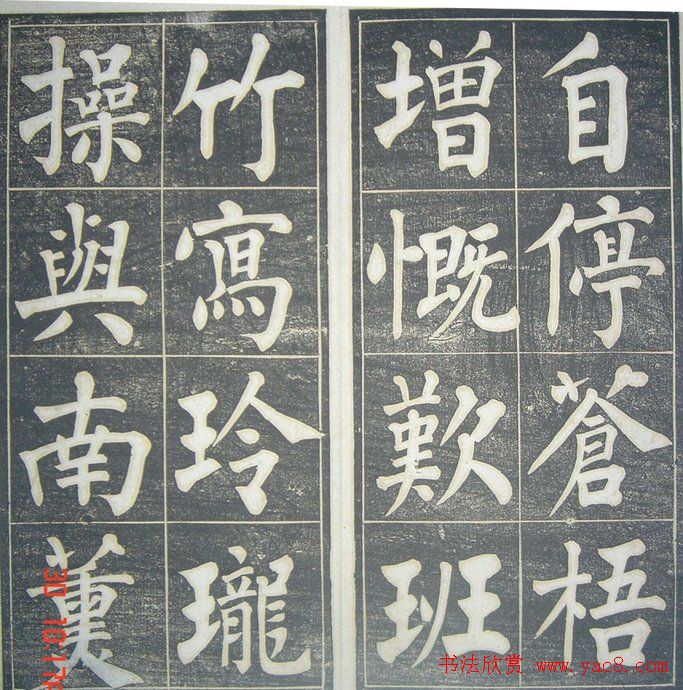 自停蒼梧
增慨歎班
竹寫玲瓏
操與南薰
书法欣赏 www.yac8.com